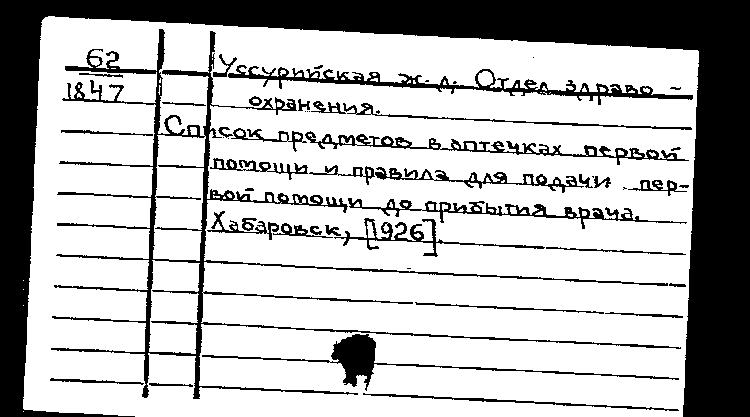 62
1847
Уссурийская ж.д. Отдел здраво-
охранения.
Список предметов в аптечках первой
помощи и правила для подачи пер-
вой помощи до прибытия врача.
Хабаровск, [1926].